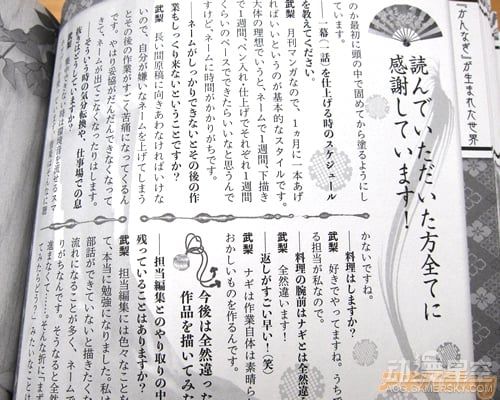 『かんなぎ』が生まれた世界
読んでいただいた方全てに
感謝しています！
のか最初に頭の中で固めてから塗るようにし
ています。
――一幕（一話）を仕上げる時のスケジュール
を教えてください。
武梨　月刊マンガなので、1ヵ月に一本あげ
ればいいというのが基本的なスタイルです。
大体の理想でいうと、ネームで1週間、下描き
で1週間、ペン入れ・仕上げでそれぞれ1週間
くらいのペースでできたらいいなと思うんで
すけど、ネームに時間がかかりがちです。
――ネームがしっかりできないとその後の作
業もしっくり来ないということですか？
武梨　長い間原稿に向きあわなければいけな
いので、自分が嫌いなネームを上げてしまう
とその後の作業がすごく苦痛になってくるん
です。やはり妥協がだんだんできなくなって
きて、ネームが
なくなったりはします。
――そういう時の気分転換や、仕事場での息
抜きは
かないですね。
――料理はしますか？
武梨　好きでやってますね。うちで
る担当が私なので。
――料理の腕前はナギとは全然違
武梨　全然違います！
――返しがすごい早い！（笑）
武梨　ナギは作業自体は素晴ら
おかしいものを作るんです。
今後は全然違った
作品を描いてみた
――担当編集とのやり取りの中
残っていることはありますか？
武梨　担当編集には色々なことを
て、本当に勉強になりました。私は
部話ができていないと描きたくな
流れになることが多く、ネームで
りがちなんです。そうなると全然
進まなくて……。そんな折に「ま
てみたらどう？
动漫星空
ACG.GAMERSKY.COM